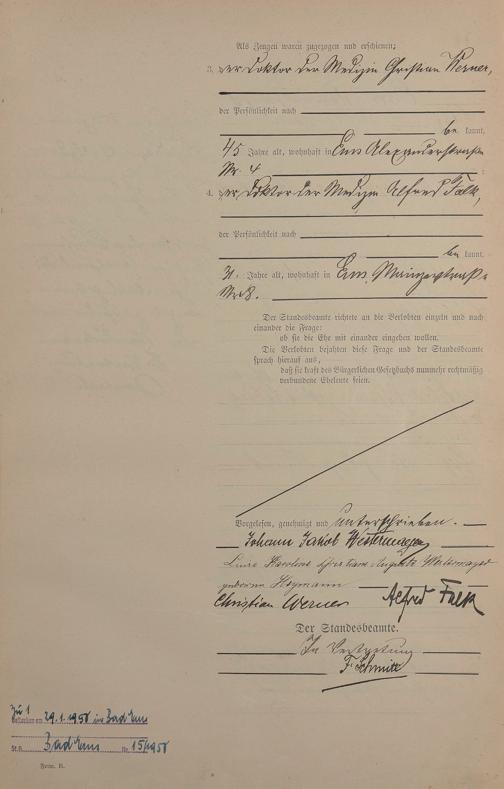 Als Zeugen waren zugezogen und erschienen:
3. der Doktor der Medizin Christian Werner,
der Persönlichkeit nach
be kannt,
45 Jahre alt, wohnhaft in Ems Alexanderstraße
Nr. 4
4. der Doktor der Medizin Alfred Falk,
der Persönlichkeit nach
be kannt,
31 Jahre alt, wohnhaft in Ems, Mainzerstraße
Nr 8.
Der Standesbeamte richtete an die Verlobten einzeln und nach
einander die Frage:
ob sie die Ehe mit einander eingehen wollen.
Die Verlobten bejahten diese Frage und der Standesbeamte
sprach hierauf aus,
daß sie kraft des Bürgerlichen Gesetzbuchs nunmehr rechtmäßig
verbundene Eheleute seien.
Vorgelesen, genehmigt und unterschrieben.
Johann Jakob
Karoline Auguste
geborene Heymann
Christian Werner Alfred Falk
Der Standesbeamte.
In Vertretung
F. Schmitt
Zu 1
29.1.1958 in Bad Ems
St.A. Bad Ems Nr. 15/1958
Form. B.